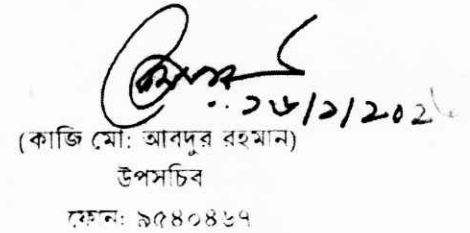 (কাজি মো: আবদুর রহমান)
উপসচিব
ফোন: ৯৫৪০৪৬৭